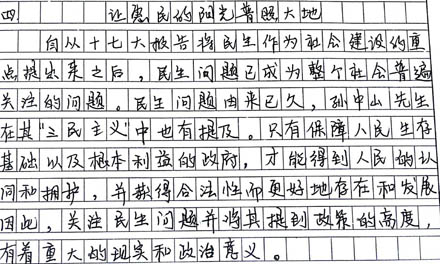 四. 让惠民的阳光普照大地
自从十七大报告将民生作为社会建设的重
点提出来之后，民生问题已成为整个社会普遍
关注的问题。民生问题由来已久，孙中山先生
在其“三民主义”中也有提及。只有保障人民生存
基础以及根本利益的政府，才能得到人民的认
同和拥护，并获得合法性而更好地存在和发展
因此，关注民生问题并将其提到政策的高度，
有着重大的现实和政治意义。